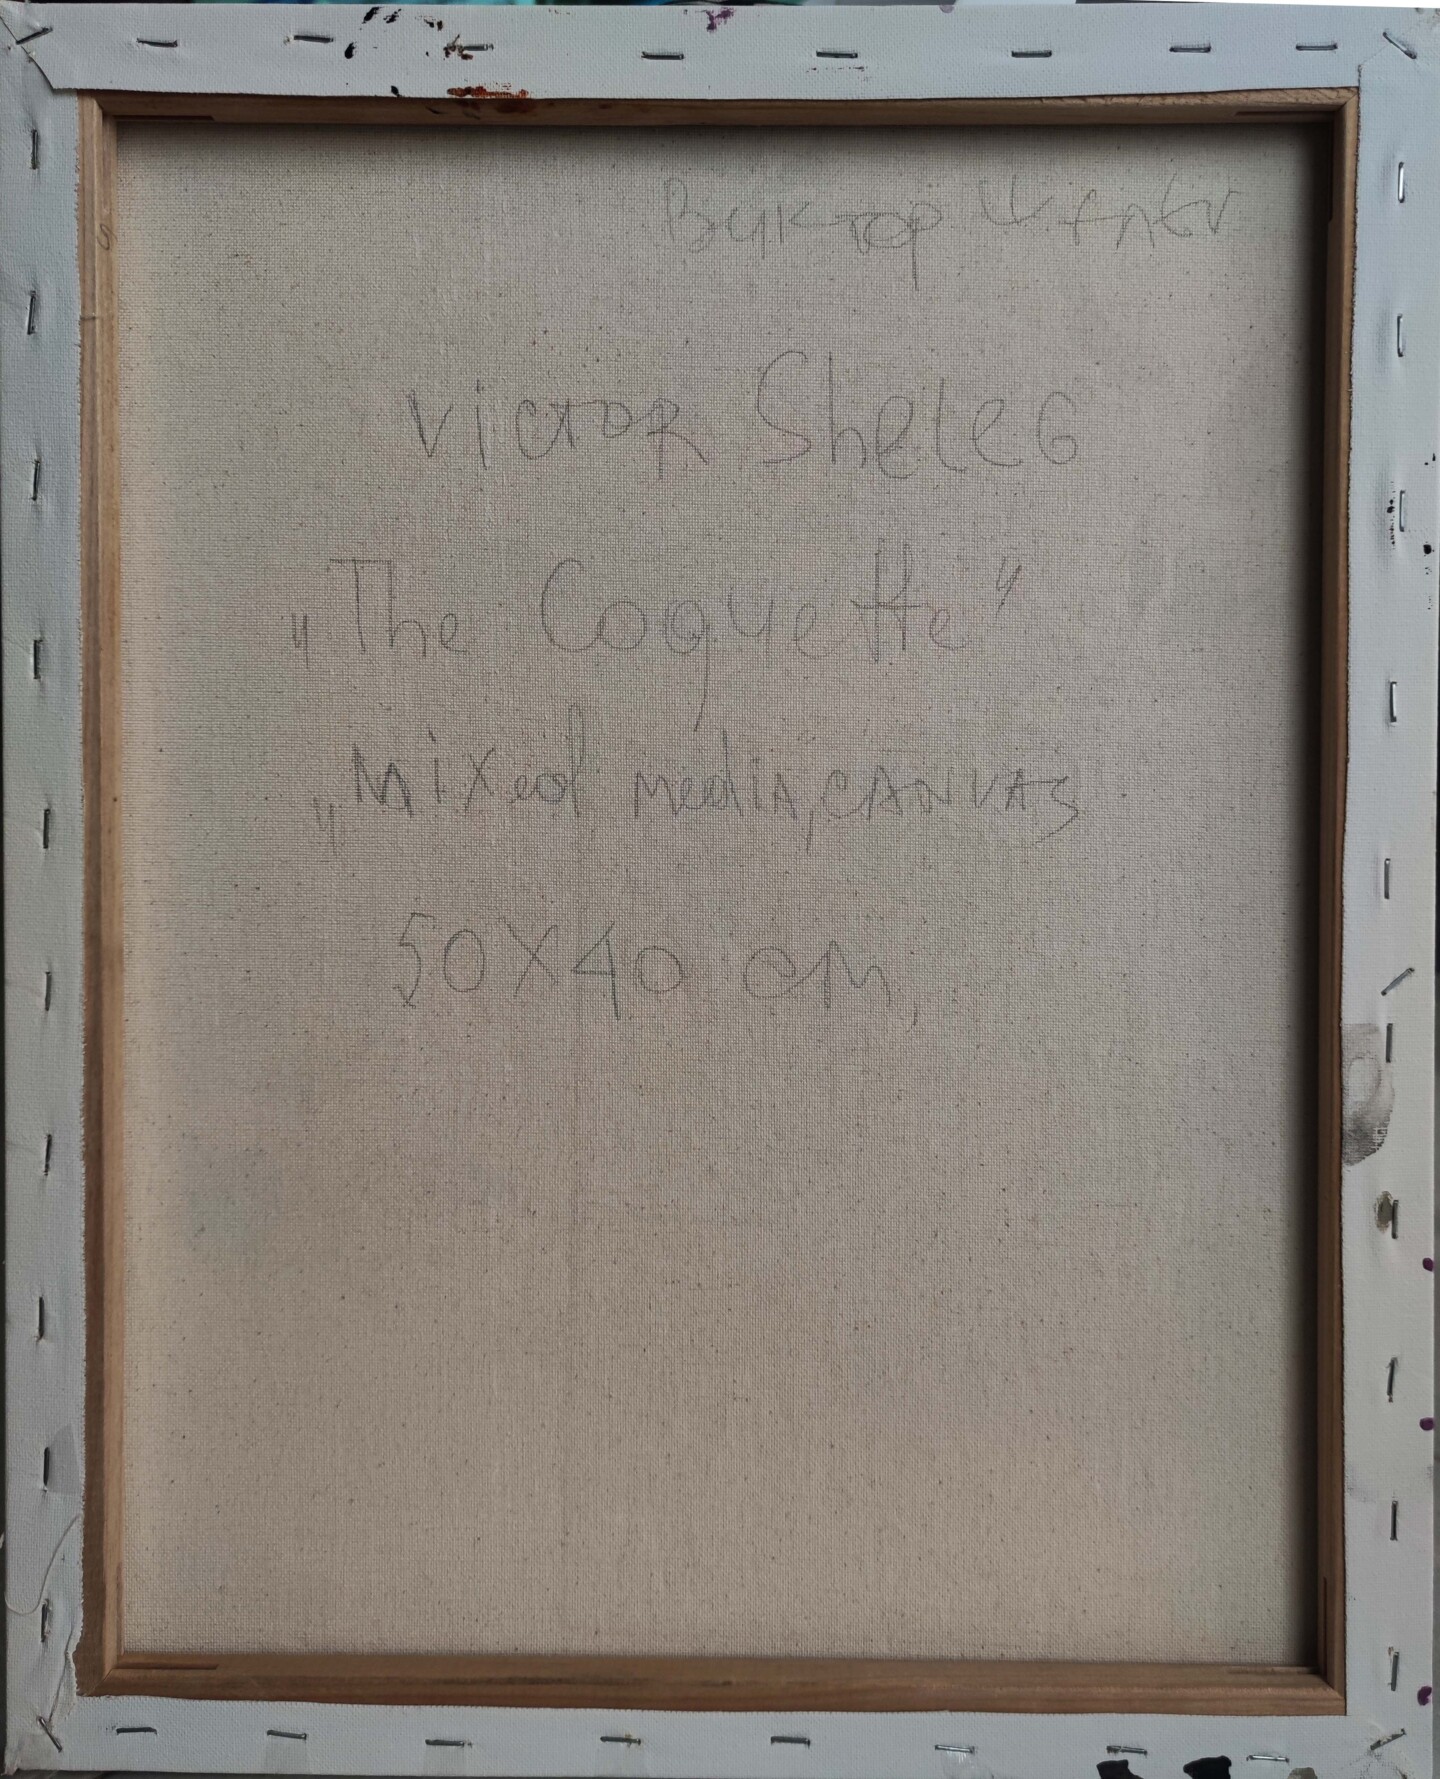 Виктор
Victor Sheleg
„The Coquette"
„Mixed media, CANVAS
50X40 cm,